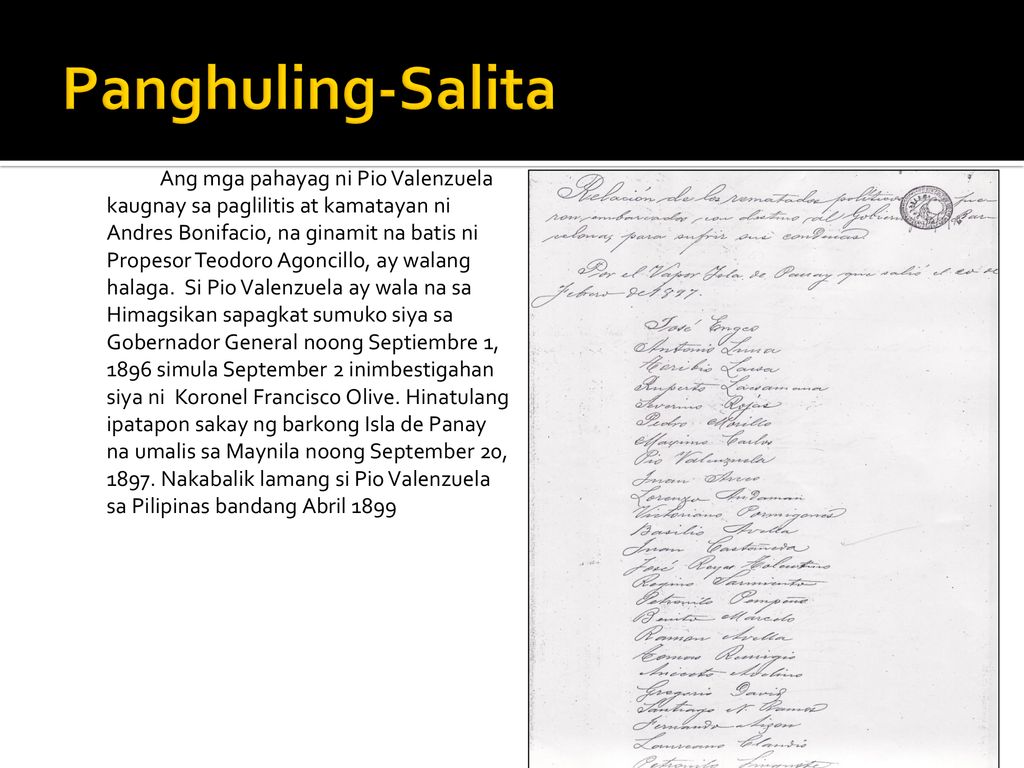 Panghuling-Salita
Ang mga pahayag ni Pio Valenzuela
kaugnay sa paglilitis at kamatayan ni
Andres Bonifacio, na ginamit na batis ni
Propesor Teodoro Agoncillo, ay walang
halaga. Si Pio Valenzuela ay wala na sa
Himagsikan sapagkat sumuko siya sa
Gobernador General noong Septiembre 1,
1896 simula September 2 inimbestigahan
siya ni Koronel Francisco Olive. Hinatulang
ipatapon sakay ng barkong Isla de Panay
na umalis sa Maynila noong September 20,
1897. Nakabalik lamang si Pio Valenzuela
sa Pilipinas bandang Abril 1899
Relación de los rematados politicos fue-
ron embarcados con destino al Gobierno Bar-
celona, para sufrir sus condenas.
Por el Vapor Isla de Panay que salió el 20 de
Febrero de 1897.
José
Antonio Luna
Toribio
Ruperto Lacsamana
Severino Rojas
Pedro Morillo
Maximo Carlos
Pio Valenzuela
Juan Arceo
Lorenzo Andaman
Victoriano Formigones
Basilio Avella
Juan Castañeda
José Reyes Tolentino
Regino Sarmiento
Petronilo
Benito Marcelo
Ramon Avella
Tomas Remigio
Aniceto Avelino
Gregorio David
Santiago N. Ramos
Fernando
Laureano Claudio
Petronilo